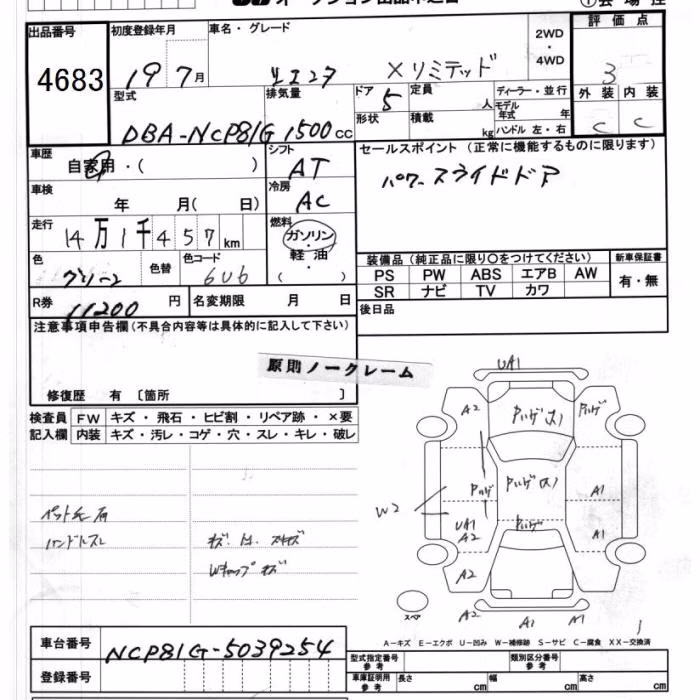 出品番号
4683
初度登録年月
19 7月
車名・グレード
Xリミテッド
2WD
・
4WD
評価点
3
外装 内装
C C
型式
DBA-NCP81G
排気量
1500cc
ドア
5
形状
定員
人
積載
kg
ディーラー・並行
モデル年式 年
ハンドル 左・右
車歴
自家用・( )
シフト
AT
セールスポイント(正常に機能するものに限ります)
パワースライドドア
車検
年 月( 日)
冷房
AC
走行
14万1千457km
燃料
ガソリン・
軽油・
( )
色
グリーン
色替
色コード
6U6
装備品(純正品に限り○をつけてください)
PS PW ABS エアB AW
SR ナビ TV カワ
新車保証書
有・無
R券
11200円
名変期限 月 日
後日品
注意事項申告欄(不具合内容等は具体的に記入して下さい)
原則ノークレーム
修復歴 有 〔箇所 〕
検査員
記入欄
FW キズ・飛石・ヒビ割・リペア跡・×要
内装 キズ・汚レ・コゲ・穴・スレ・キレ・破レ
ハンドルスレ
Wキャップキズ
UA1
A2
W2
UA1
A2
A2
A1
A1
A2
A1
A1
スペア
A-キズ E-エクボ U-凹み W-補修跡 S-サビ C-腐食 XX-交換済
車台番号
NCP81G-5039254
登録番号
型式指定番号
参考
類別区分番号
参考
車庫証明用
参考
長さ cm
幅 cm
高さ cm